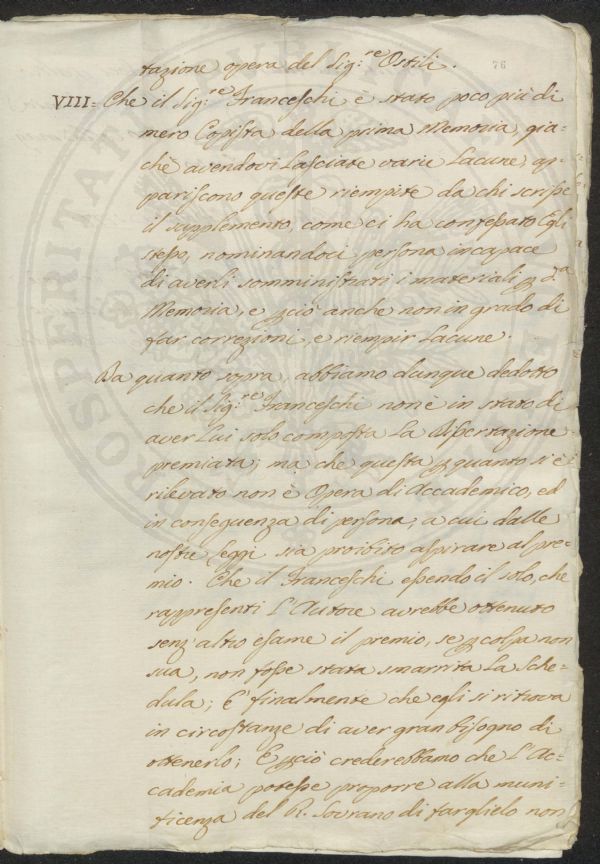 76
tazione opera del Sig:re Ostili.
VIII= Che il Sig:re Franceschi è stato poco più di
mero Copista della prima Memoria, gia=
chè avendovi lasciate varie lacune, ap=
pariscono queste riempite da chi scrisse
il supplemento, come ci ha confessato Egli
stesso, nominandoci persona incapace
di averli somministrati i materiali
Memoria, e ꝑciò anche non in grado di
far correzioni, e riempir lacune.
Da quanto sopra, abbiamo dunque dedotto
che il Sig:re Franceschi non è in stato di
aver lui solo composta la Dissertazione
premiata; ma che questa ꝑ quanto si è
rilevato non è Opera di Accademico, ed
in conseguenza di persona, a cui dalle
nostre Leggi sia proibito aspirare al pre=
mio. Che il Franceschi essendo il solo, che
rappresenti l'Autore avrebbe ottenuto
senz'altro esame il premio, se ꝑ colpa non
sua, non fosse stata smarrita la Sche=
dula; E' finalmente che egli si ritrova
in circostanze di aver gran bisogno di
ottenerlo; E ꝑciò crederebbamo che l'Ac=
cademia potesse proporre alla muni=
ficenza del R. Sovrano di farglielo non
PROSPERITATI